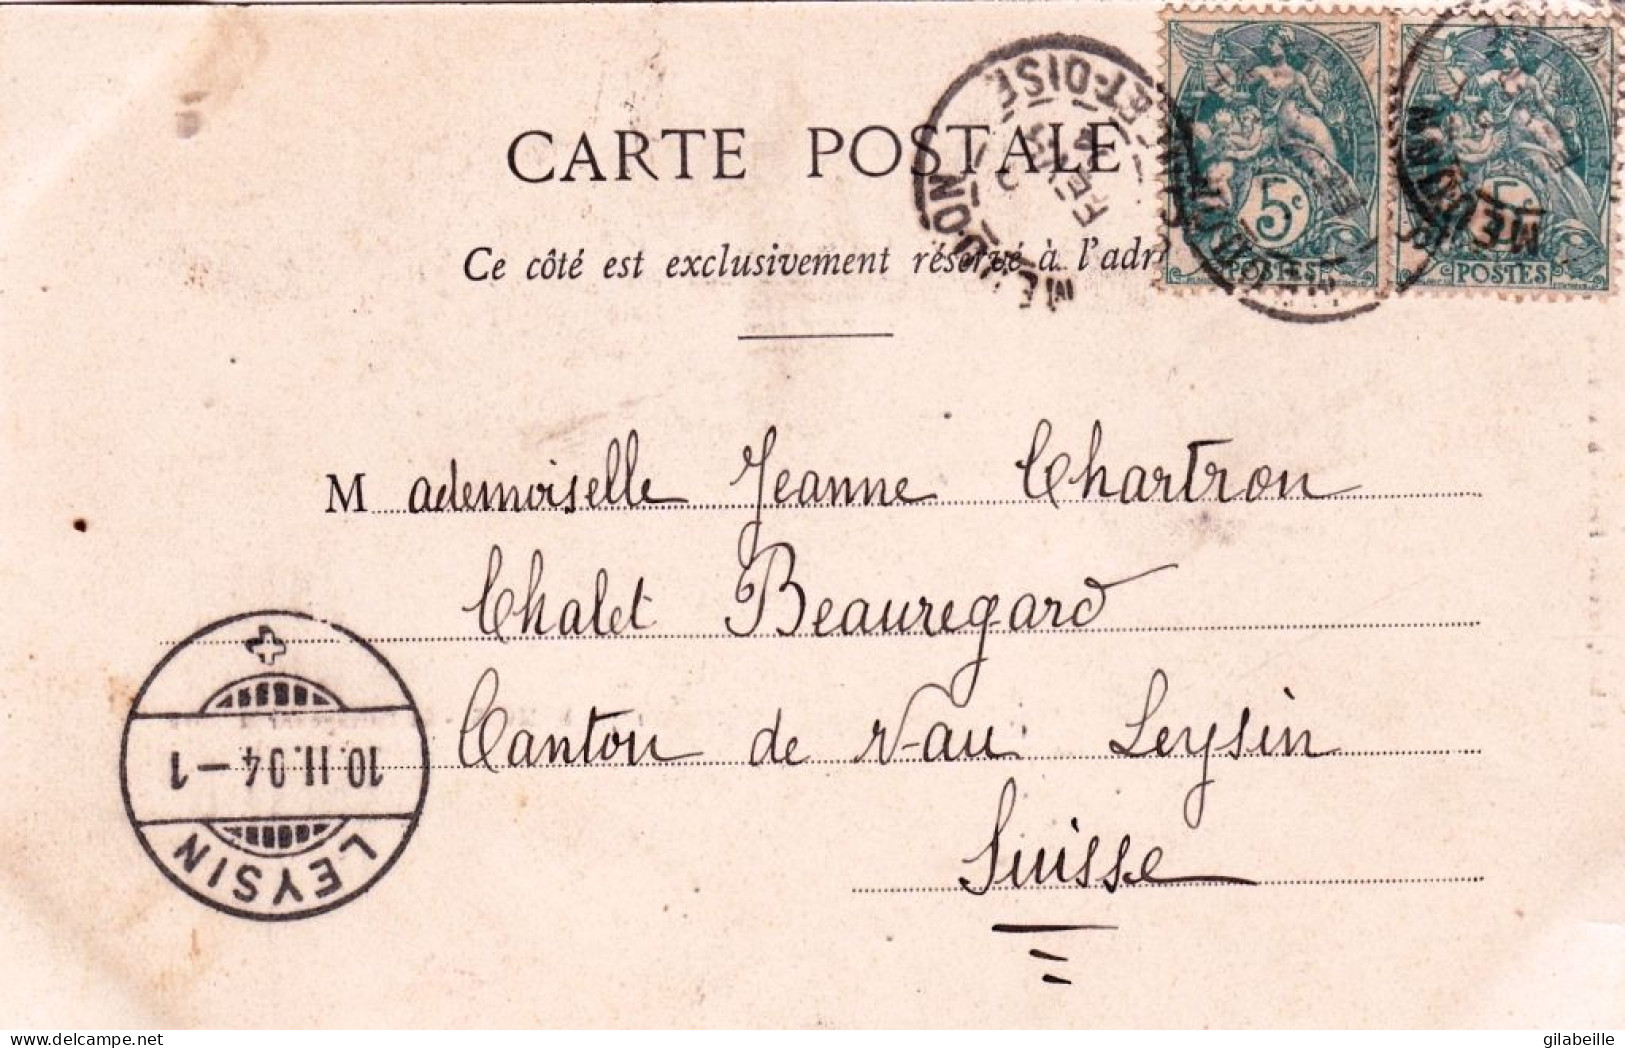 CARTE POSTALE
Ce côté est exclusivement réservé à l'adr
MEUDON
ET-OISE
5c
POSTES
5c
POSTES
MEUDON
Mademoiselle Jeanne Chartron
Chalet Beauregard
Canton de Vau Leysin
Suisse
10.II.04-1
LEYSIN
delcampe.net
gilabeille